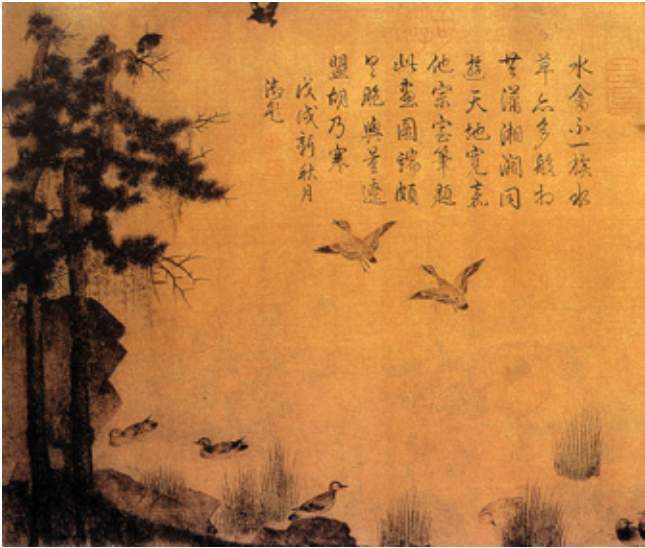 水禽不一族水
草亦多般相
共瀟湘闊同
遊天地寬嘉
他宗室筆題
此畫圖端頗
與
盟胡乃寒
戊戌新秋月
御筆